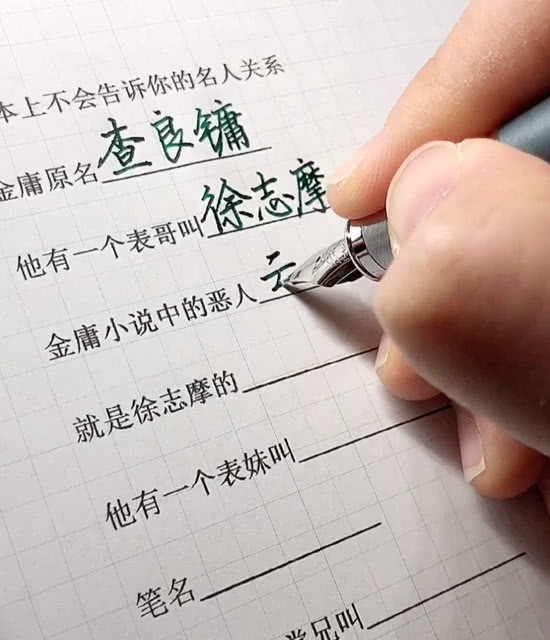 本上不会告诉你的名人关系
金庸原名查良镛
他有一个表哥叫徐志摩
金庸小说中的恶人云
就是徐志摩的
他有一个表妹叫
笔名
堂兄叫